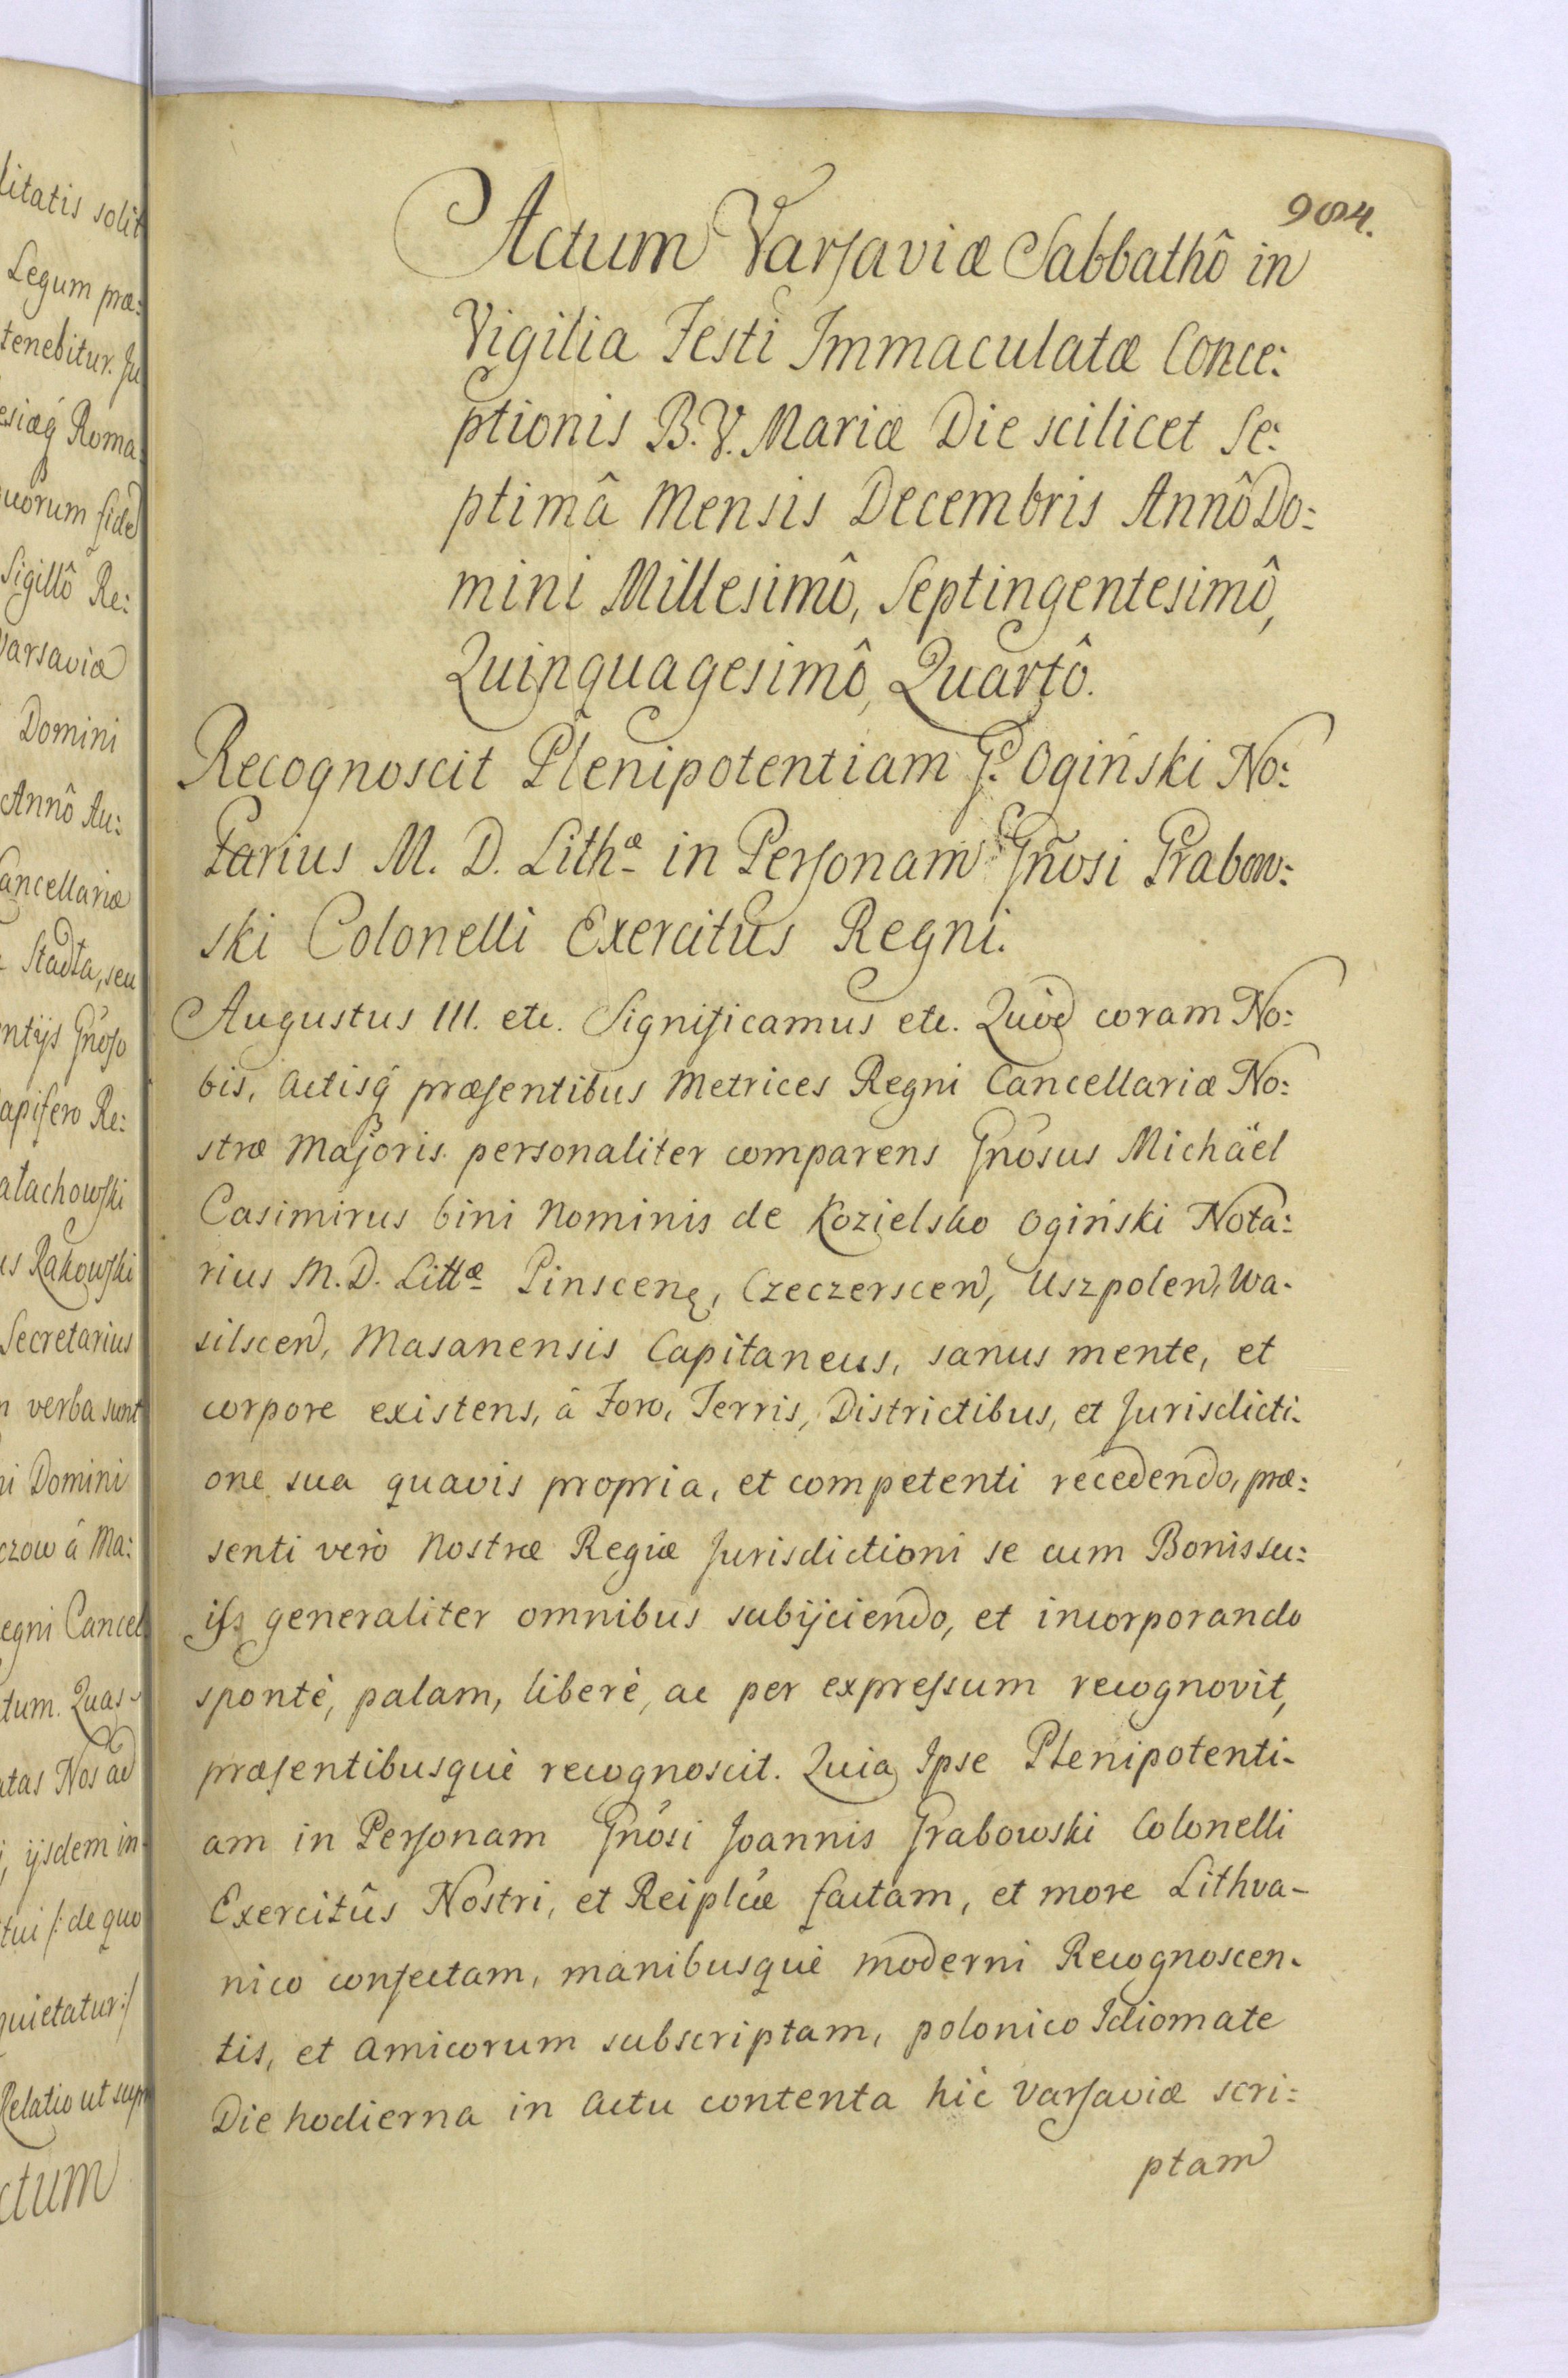 litatis solit
Legum præ:
tenebitur. Ju
esiæq́ Roma
quorum fide
Sigillô Re:
Varsaviæ
Domini
Annô Au:
Cancellariæ
Stadta, seu
ntijs Gnoso
apifero Re:
atachowski
us Rakowski
Secretarius
n verba sunt
ni Domini
czow â Ma:
egni Cancel
tum. Quas
atas Nos ad
ijsdem in
tui /: de quo
quietatur :/
Relatio ut supr
ctum
904.
Actum Varsaviæ Sabbathô in
Vigilia Festi Immaculatæ Conce:
ptionis B. V. Mariæ Die scilicet Se:
ptimâ Mensis Decembris Annô Do:
mini Millesimô, Septingentesimô,
Quinquagesimô, Quartô.
Recognoscit Plenipotentiam G. Ogiński No:
tarius M. D. Lithæ in Personam Gnosi Grabow:
ski Colonelli Exercitus Regni.
Augustus III. etc. Significamus etc. Quod coram No:
bis, Actisq́ præsentibus Metrices Regni Cancellariæ No:
stræ Majoris personaliter comparens Gnosus Michäel
Casimirus bini Nominis de Kozielsko Ogiński Nota:
rius M. D. Littæ Pinscen, Czeczerscen, Uszpolen, Wa-
silscen, Masanensis Capitaneus, sanus mente, et
corpore existens, â Foro, Terris, Districtibus, et Jurisdicti-
one sua quavis propria, et competenti recedendo, præ:
senti verò Nostræ Regiæ Jurisdictioni se cum Bonis su:
iss generaliter omnibus subijciendo, et incorporando
spontè, palam, liberè, ac per expressum recognovit,
præsentibusquè recognoscit. Quia Ipse Plenipotenti-
am in Personam Gnosi Joannis Grabowski Colonelli
Exercitûs Nostri, et Reiplcæ factam, et more Lithva-
nico confectam, manibusquè moderni Recognoscen-
tis, et Amicorum subscriptam, polonico Idiomate
Die hodierna in Actu contenta hìc Varsaviæ scri:
ptam